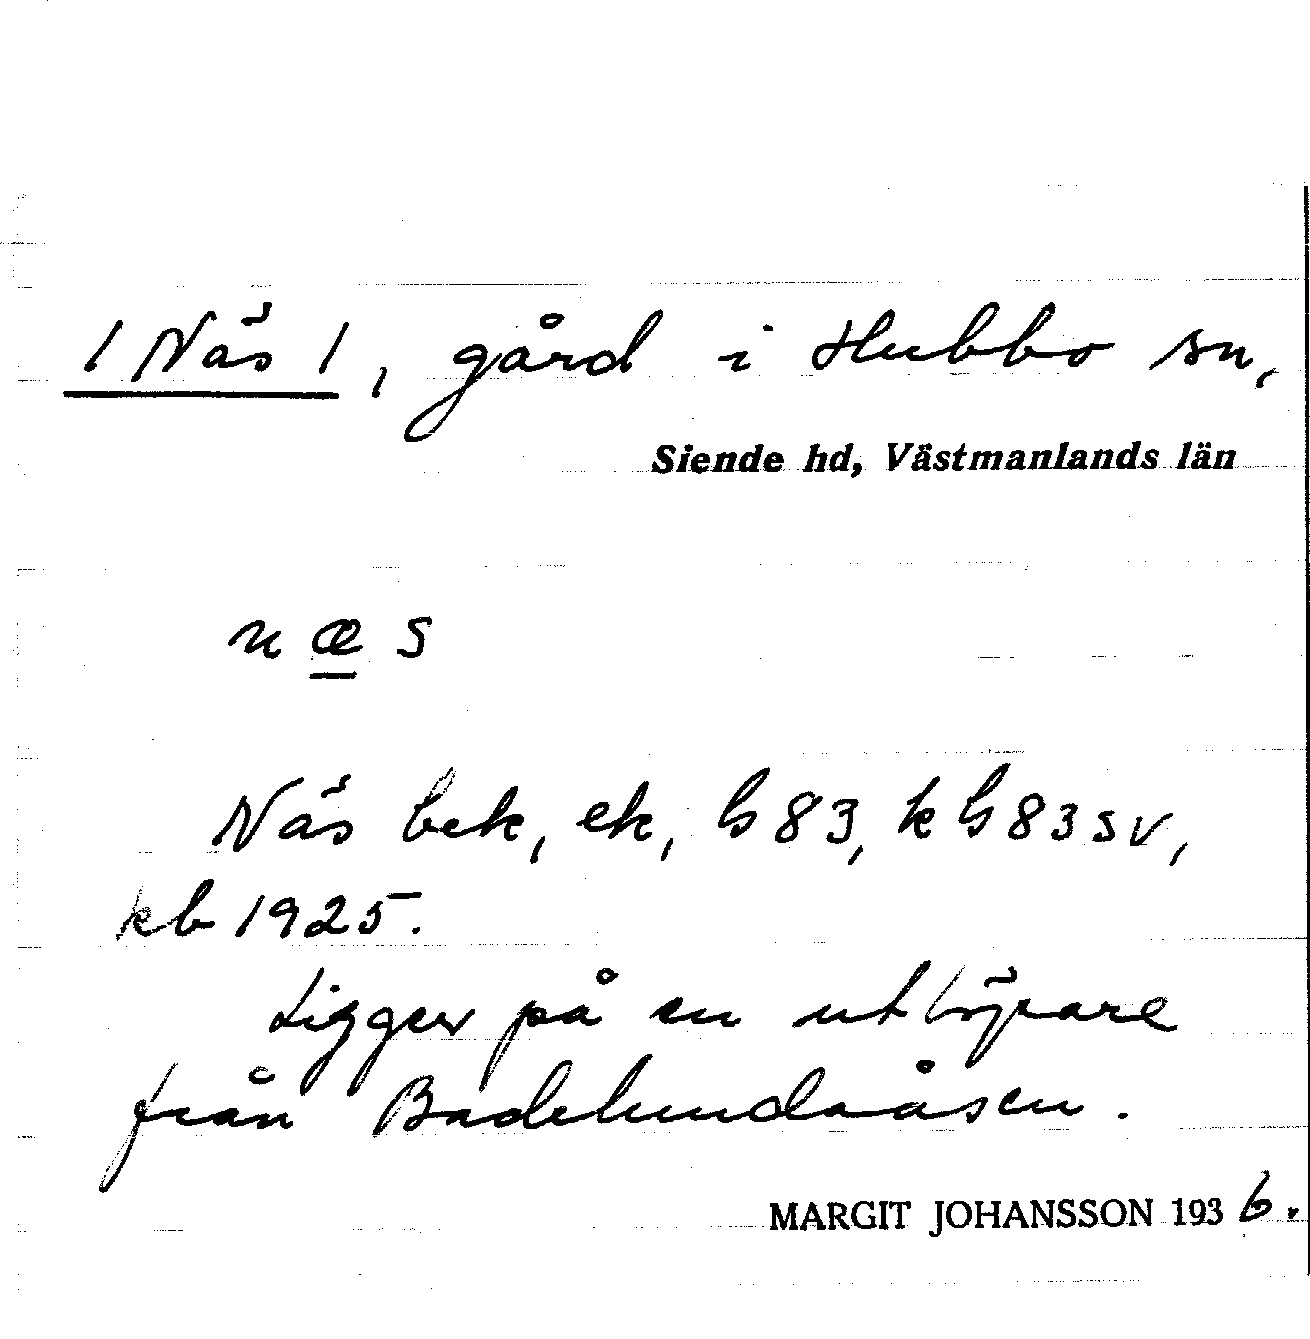 / Näs /, gård i Hubbo sn,
Siende hd, Västmanlands län
n æ s
Näs bek, ek, b 83, k b 83 sv,
kb 1925.
Ligger på en utlöpare
från Badelundaåsen.
MARGIT JOHANSSON 1936.